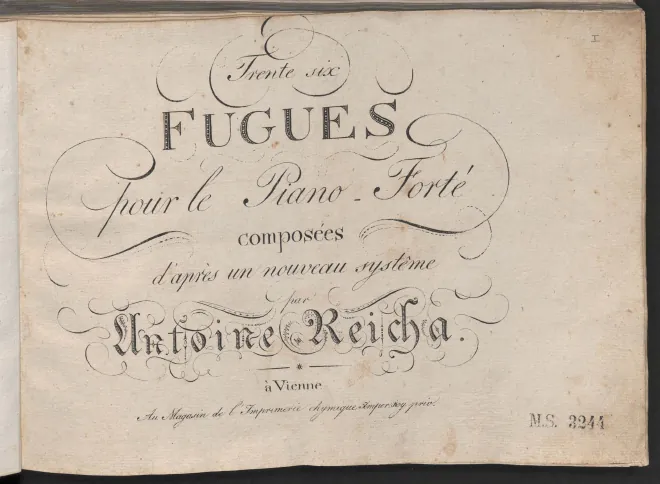 I
Trente six
FUGUES
pour le Piano-Forté
composées
d'après un nouveau système
par
Antoine Reicha.
à Vienne
Au Magasin de l'Imprimerie chymique Imper Roy priv.
M.S. 3244